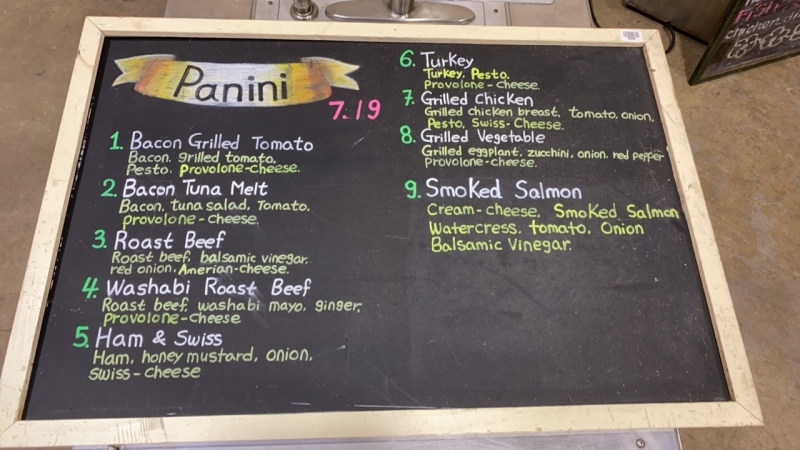 Panini
7.19
1. Bacon Grilled Tomato
Bacon, grilled tomato,
Pesto, Provolone-cheese.
2. Bacon Tuna Melt
Bacon, tuna salad, Tomato,
provolone-cheese.
3. Roast Beef
Roast beef, balsamic vinegar,
red onion, Amerian-cheese.
4. Washabi Roast Beef
Roast beef, washabi mayo, ginger,
Provolone-cheese
5. Ham & Swiss
Ham, honey mustard, onion,
Swiss-cheese
6. Turkey
Turkey, Pesto,
Provolone-cheese.
7. Grilled Chicken
Grilled chicken breast, tomato, onion,
Pesto, Swiss-Cheese.
8. Grilled Vegetable
Grilled eggplant, zucchini, onion, red pepper
Provolone-cheese.
9. Smoked Salmon
Cream-cheese, Smoked Salmon
Watercress, tomato, Onion
Balsamic Vinegar.
chicken